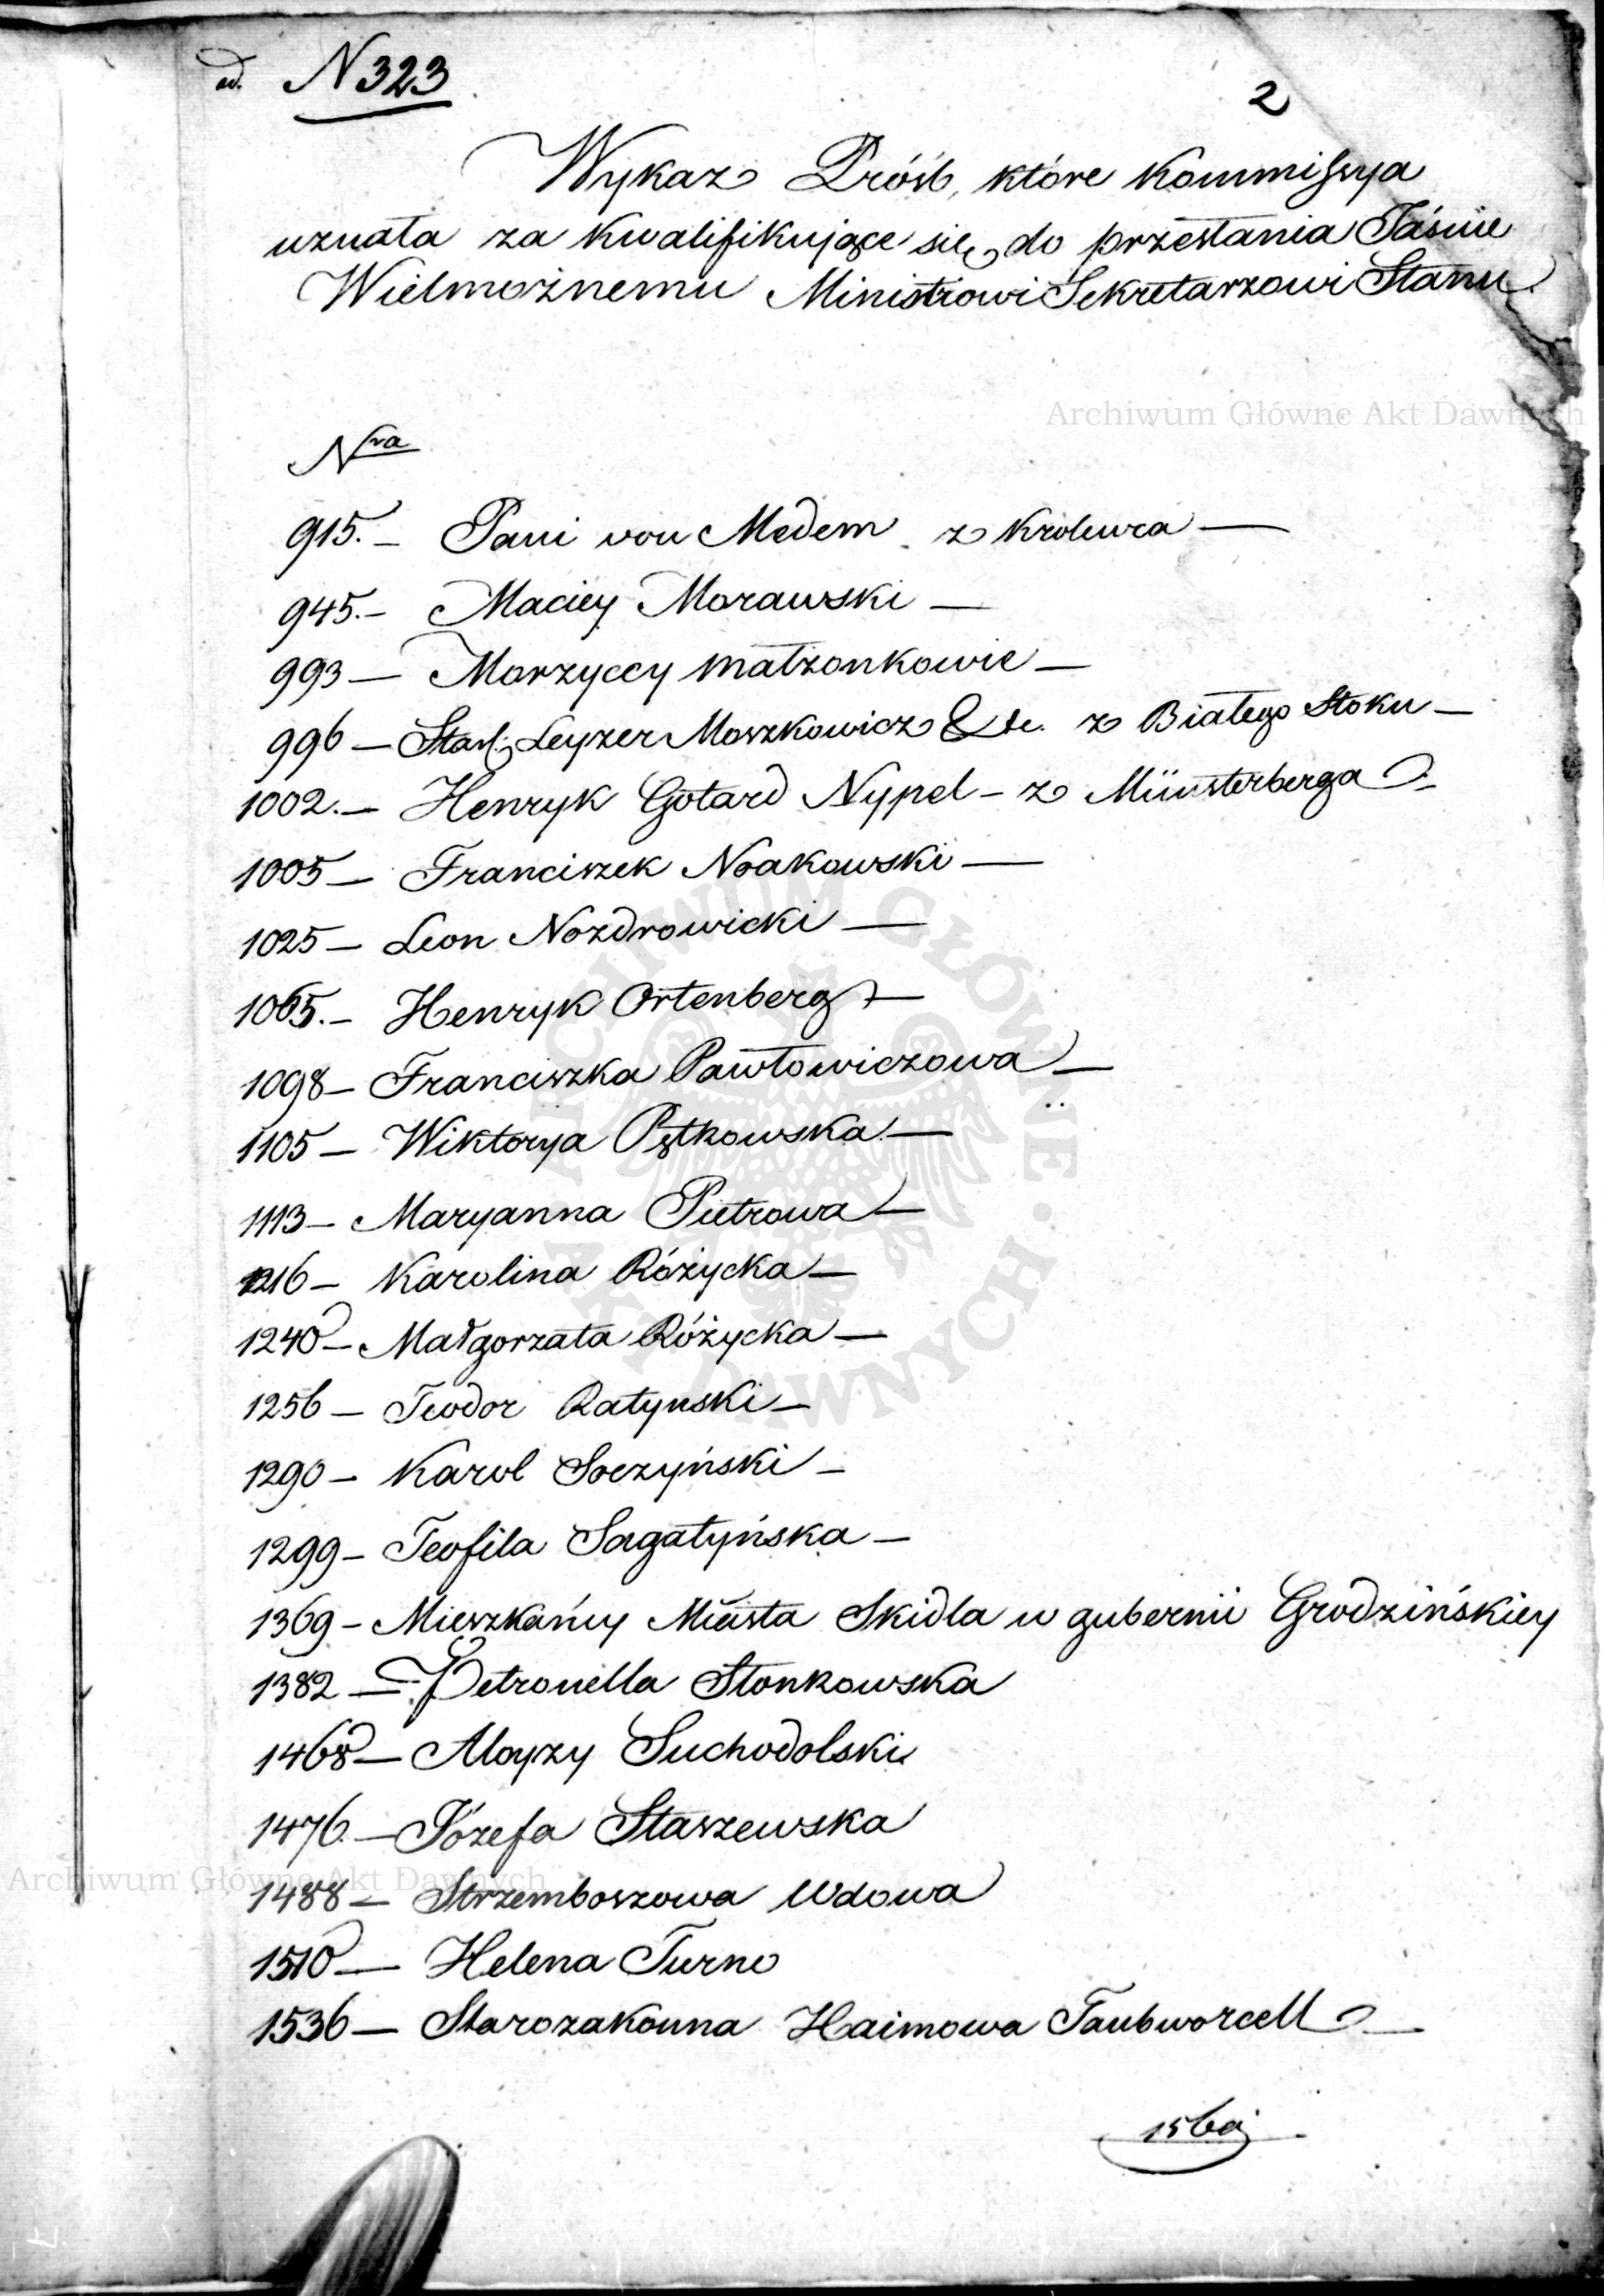 ad. N 323
2
Wykaz Próśb, które Kommissya
uznała za kwalifikujące się do przesłania Jaśnie
Wielmożnemu Ministrowi Sekretarzowi Stanu
Archiwum Główne Akt Dawnych
Nra
915. – Pani von Medem z Krolewca —
945. – Maciey Morawski —
993 — Morzyccy małżonkowie —
996 — Star: Leyzer Moszkowicz & de. z Białego Stoku —
1002. — Henryk Gotard Nypel – z Münsterberga
1005 — Franciszek Noakowski —
1025 — Leon Nozdrowicki —
1065. – Henryk Ortenberg —
1098 – Franciszka Pawłowiczowa —
1105 — Wiktorya Pętkowska —
1113 – Maryanna Pietrowa —
1216 – Karolina Różycka —
1240 – Małgorzata Różycka —
1256 – Teodor Ratynski —
1290 – Karol Soczyński –
1299 – Teofila Sagatyńska –
1369 – Mieszkańcy Miasta Skidla w gubernii Grodzińskiey
1382 — Petronella Stonkowska
1468 — Aloyzy Suchodolski
1476. — Józefa Staszewska
Archiwum Główne Akt Dawnych
1488 – Strzemboszowa Wdowa
1510 — Helena Turno
1536 — Starozakonna Haimowa Taubworcell —
ARCHIWUM GŁÓWNE AKT DAWNYCH